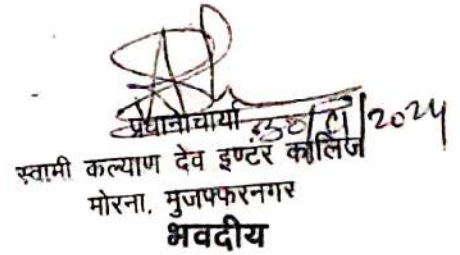 प्रधानाचार्या 30/01/2024
स्वामी कल्याण देव इण्टर कालिज
मोरना, मुजफ्फरनगर
भवदीय